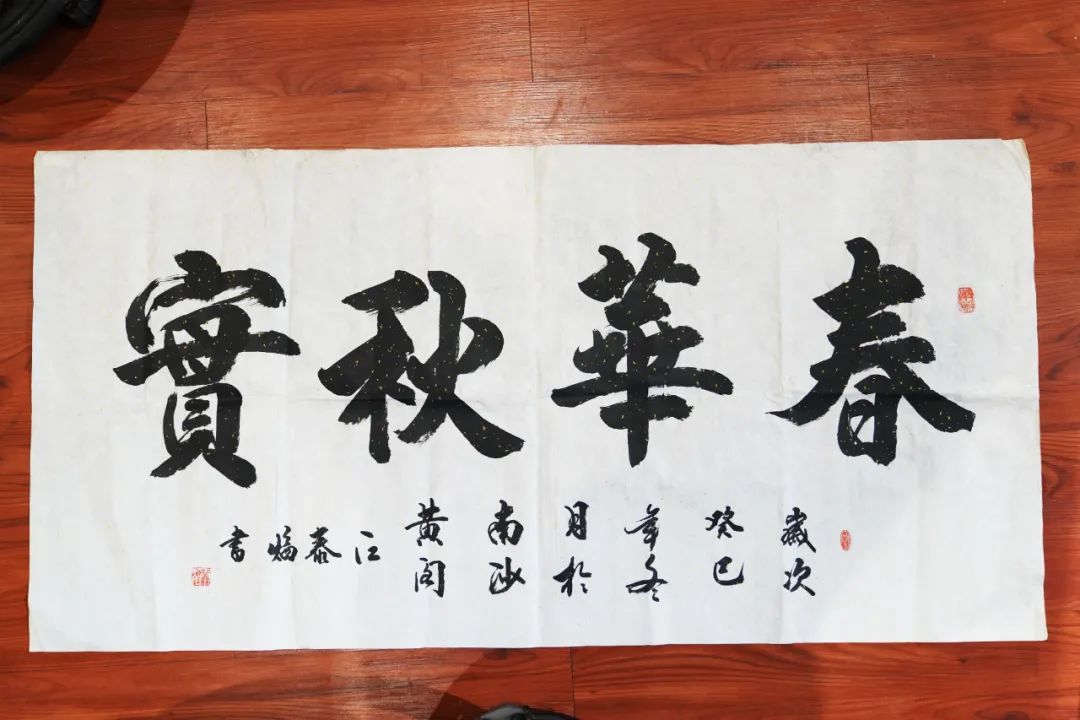 春華秋實
歲次
癸巳
年冬
月於
南沙
黃閣
江
泰
書